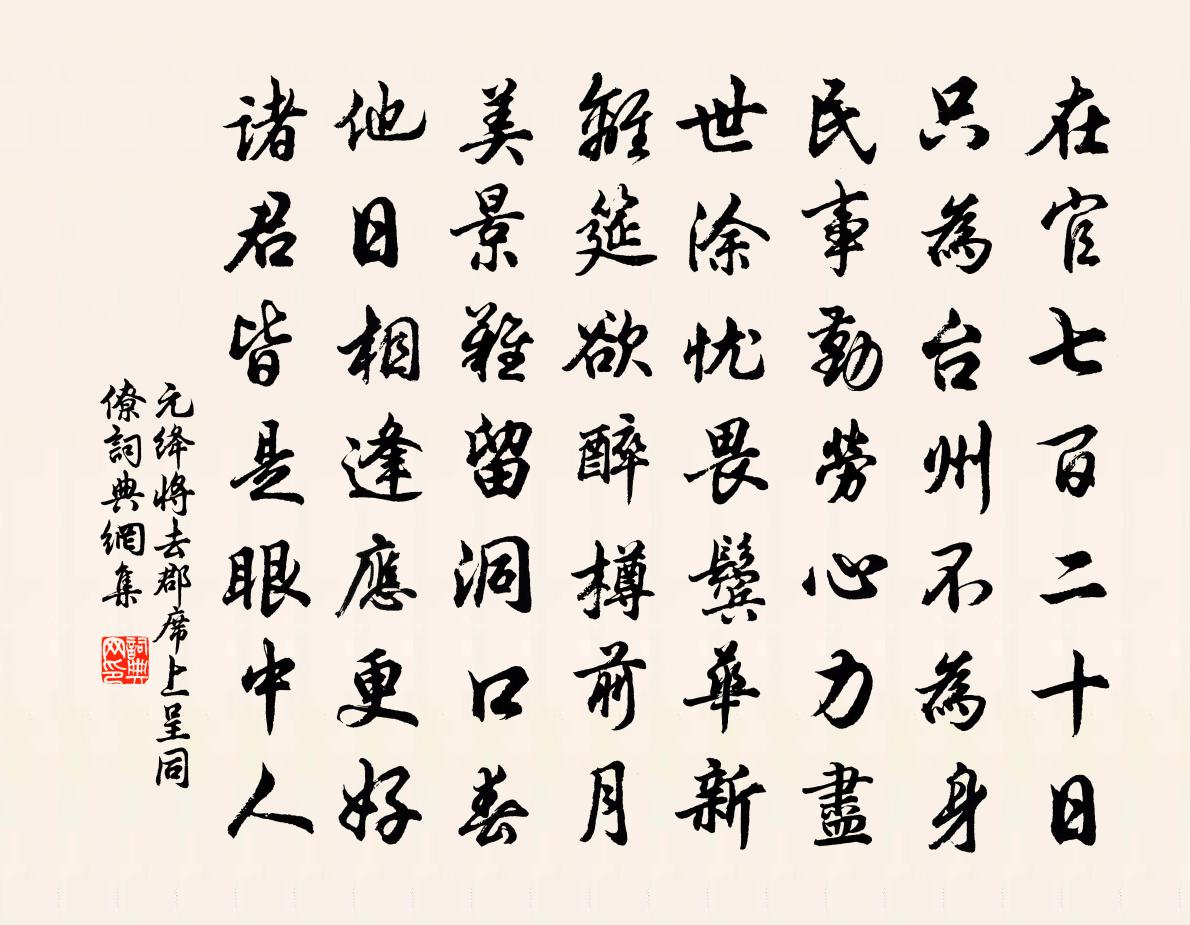 在官七百二十日
只為台州不為身
民事勤勞心力盡
世涂忧畏鬢華新
離筵欲醉樽前月
美景難留洞口春
他日相逢應更好
諸君皆是眼中人
元绛將去郡席上呈同
僚詞典網集
詞典
网印